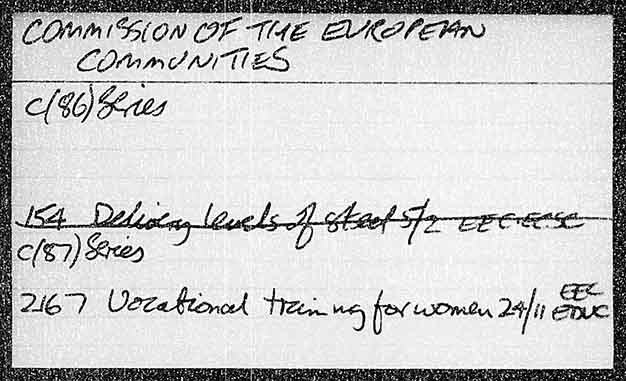 COMMISSION OF THE EUROPEAN
COMMUNITIES
C(86) Series
154 Delivery levels of steel 5/2 EEC-ECSC
C(87) Series
2167 Vocational training for women 24/11 EEC
EDUC